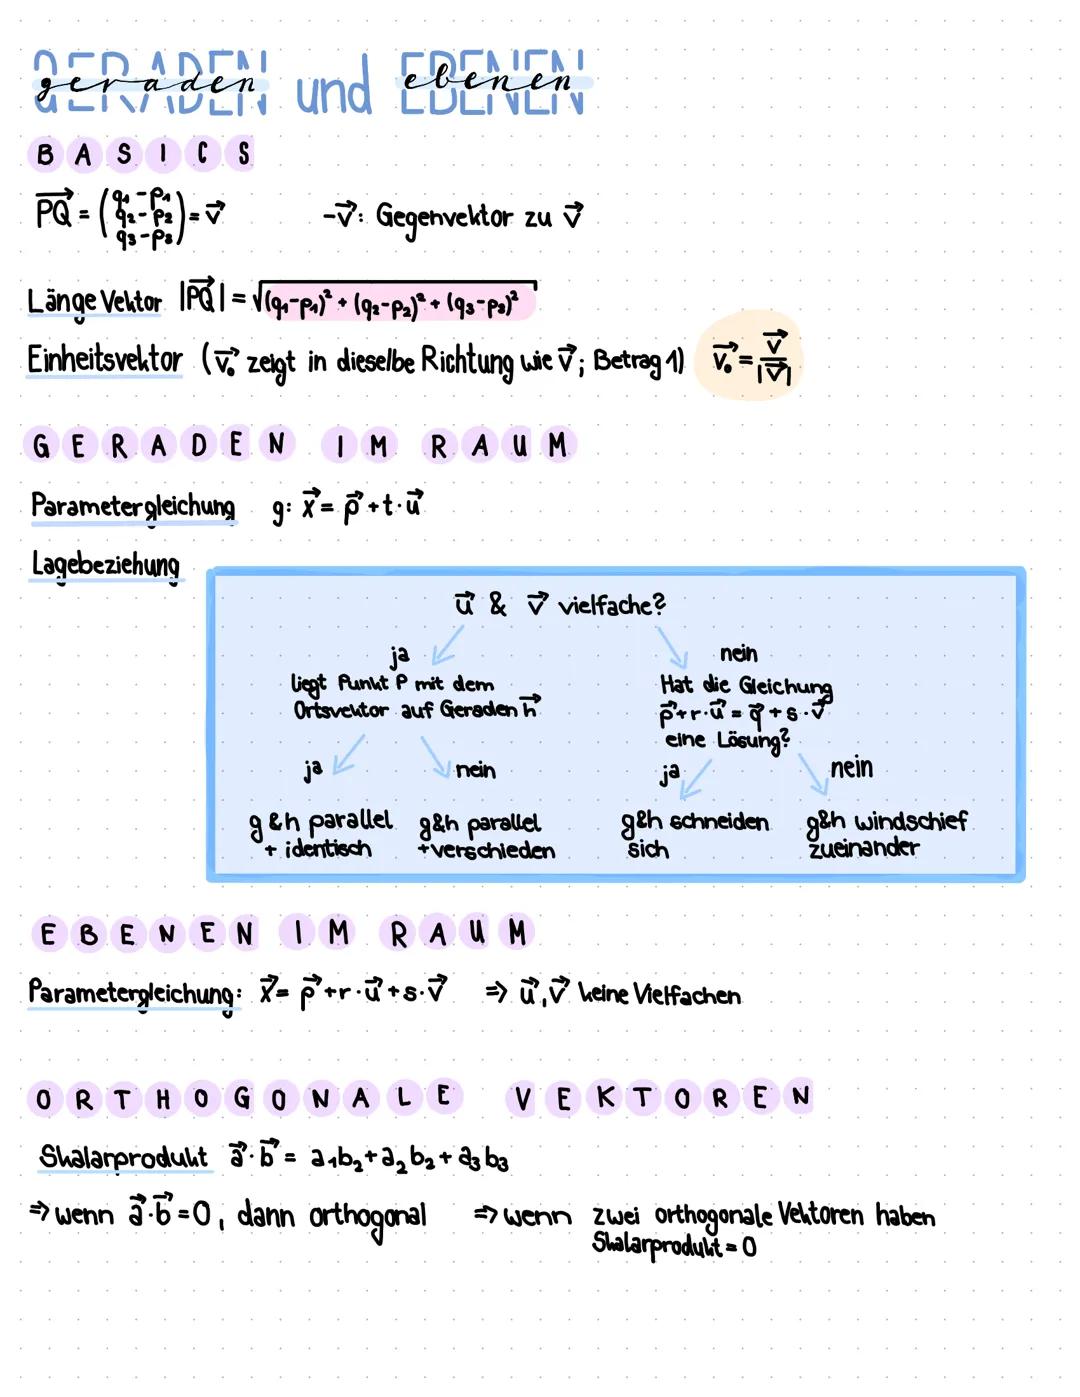 GERADEN und EBENEN
geraden ebenen
BASICS
PQ⃗ = (q₁-p₁ q₂-p₂ q₃-p₃) = v⃗
-v⃗: Gegenvektor zu v⃗
Länge Vektor |PQ⃗| = √(q₁-p₁)² + (q₂-p₂)² + (q₃-p₃)²
Einheitsvektor (v₀⃗ zeigt in dieselbe Richtung wie v⃗; Betrag 1) v₀⃗ = v⃗/|v⃗|
GERADEN IM RAUM
Parametergleichung g: x⃗ = p⃗ + t·u⃗
Lagebeziehung
u⃗ & v⃗ vielfache?
ja
liegt Punkt P mit dem
Ortsvektor auf Geraden h⃗
ja
g&h parallel
+ identisch
nein
g&h parallel
+verschieden
nein
Hat die Gleichung
p⃗+r·u⃗ = q⃗+s·v⃗
eine Lösung?
ja
g&h schneiden
sich
nein
g&h windschief
zueinander
EBENEN IM RAUM
Parametergleichung: x⃗ = p⃗+r·u⃗+s·v⃗ ⇒ u⃗,v⃗ keine Vielfachen
ORTHOGONALE VEKTOREN
Skalarprodukt a⃗·b⃗ = a₁b₂+a₂b₂+a₃b₃
⇒ wenn a⃗·b⃗ = 0, dann orthogonal
⇒ wenn zwei orthogonale Vektoren haben
Skalarprodukt = 0